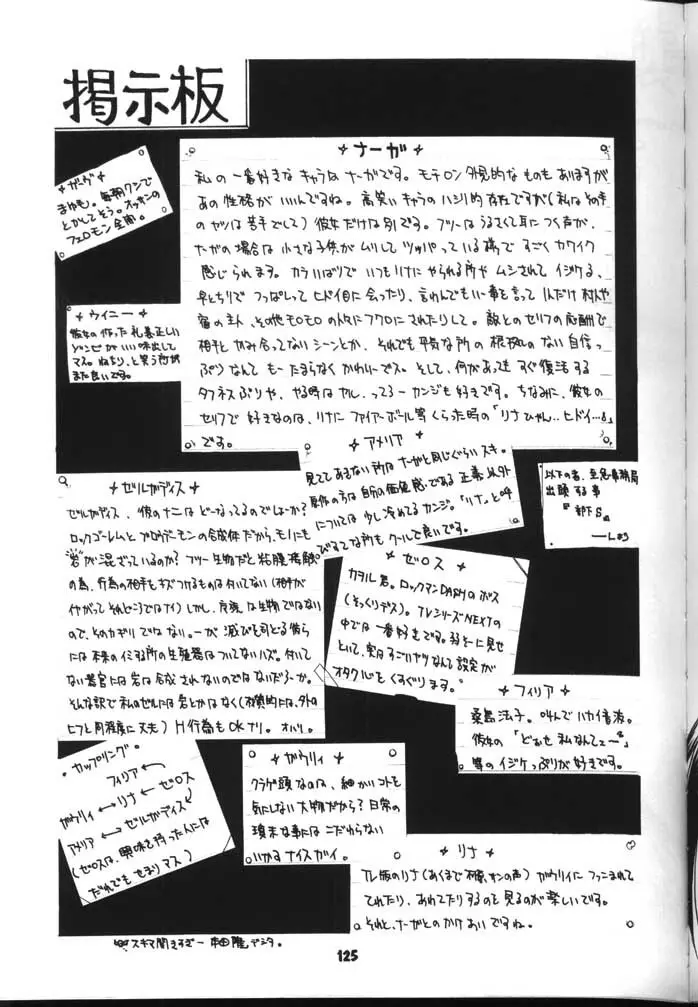 掲示板
✦ナーガ✦
私の一番好きなキャラはナーガです。モチロン外見的なものもありますが
あの性格がいいんですね。高笑いキャラのハシリ的存在ですが(私はこの手
のヤツは苦手でして)彼女だけは別です。フツーはうるさくて耳につく声が、
ナーガの場合は小さな子供がムリしてツッパっている様で すごくカワイク
感じられます。カラいばりで いつもリナにやられる所や ムシされて イジケる、
早とちりで つっぱしって ヒドイ目に会ったり、言わんでもいい事を言って 1人だけ 村人や
宿の主人、その他モロモロの人々にフクロにされたりして。敵とのセリフの応酬で
相手と かみ合ってない シーンとか、それでも平気な所の 根拠のない 自信っ
ぷりなんて もー たまらなく かわいーでス。そして、何があっても すぐ復活する
タフネスぶりや、やる時は ヤル、ってろー カンジも好きです。ちなみに、彼女の
セリフで 好きなのは、リナに ファイアーボール等 くらった時の「リナひゃん‥ヒドイ…」
です。
✦ガーヴ✦
まゆも。毎朝クシで
とかしてそう。オッサンの
フェロモン全開。
✦ウイニー✦
彼女の作った礼儀正しい
ゾンビがいい味出して
マス。ねちり、と笑う
また良いです。
✦アメリア✦
見てて あきない 所は ナーガと同じぐらい スキ。
原作の方は 自分の価値感である 正義 以外
については 少し冷めてる カンジ。「リナ」と呼
びすてな所も クールで良いです。
以下の者、至急事務局
出頭する事
『部下S』
✦ゼルガディス✦
ゼルガディス、彼のナニは どーなってるのでしょーか?
ロックゴーレムと ブロウデーモンの合成体だから、モノにも
"岩"が混ざっているのか? フツー生物だと 粘膜 接触
の為、行為の相手を キズつけるものは 付いてない(相手が
イヤがって それどころではナイ)しかし、魔族 は生物ではない
ので、そのカギリ ではない。‥が 滅びを司どる彼ら
には 本来のイミする所の 生殖器は ついてないハズ。付いて
ない器官には 岩は 合成 されないのではないだろーか。
そんな訳で 私のゼルには 岩とかはなく(材質的には、外の
ヒフと同程度に丈夫)H行為もOKナリ。オハリ。
✦ゼロス
カヲル君。ロックマンDASHのボス
(そっくりデス)。TVシリーズNEXTの
中では 一番好きです。弱そーに見せ
といて、実はすごいヤツなんて設定が
オタク心をくすぐります。
✦フィリア✦
桑島法子。叫んで ハカイ音波。
彼女の「どぉせ 私なんてェ〜」
等の イジケっぷりが 好きです。
・カップリング・
フィリア
ガウリィ ←→ リナ ← ゼロス
アメリア ←→ ゼルガディス
(ゼロスは、興味を持った人には
だれでも せまりマス)
✦ガウリィ✦
クラゲ頭なのは、細かいコトを
気にしない 大物だから? 日常の
瑣末な事には こだわらない
いかす ナイスガイ。
✦リナ✦
TV版のリナ(あくまで林原サンの声)ガウリイにフニュまれて
てれたり、あわてたりするのを 見るのが 楽しいです。
それと、ナーガとの かけあい ですね。
スキマ開きすぎー 本田隆 デシタ。
125